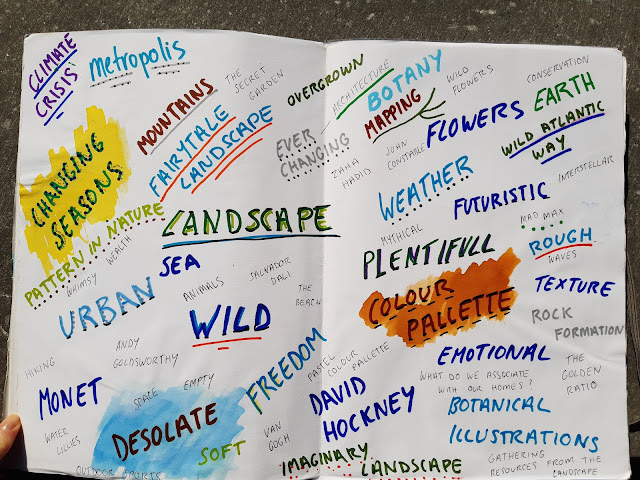 CLIMATE
CRISIS
metropolis
MOUNTAINS
THE
SECRET
GARDEN
FAIRYTALE
LANDSCAPE
CHANGING
SEASONS
PATTERN IN NATURE
WHIMSY
WEALTH
EVER
CHANGING
LANDSCAPE
SEA
URBAN
ANIMALS
SALVADOR
DALI
THE
BEACH
WILD
HIKING
ANDY
GOLDSWORTHY
MONET
SPACE
EMPTY
FREEDOM
WATER
LILLIES
DESOLATE
SOFT
VAN
GOGH
OUTDOOR SPORTS
OVERGROWN
ARCHITECTURE
BOTANY
MAPPING
WILD
FLOWERS
CONSERVATION
ZAHA
HADID
JOHN
CONSTABLE
FLOWERS
EARTH
WILD ATLANTIC
WAY
WEATHER
INTERSTELLAR
FUTURISTIC
MYTHICAL
MAD MAX
PLENTIFULL
ROUGH
WAVES
COLOUR
PALLETTE
TEXTURE
ROCK
FORMATION
PASTEL
COLOUR
PALLETTE
EMOTIONAL
WHAT DO WE ASSOCIATE
WITH OUR HOMES?
THE
GOLDEN
RATIO
DAVID
HOCKNEY
BOTANICAL
ILLUSTRATIONS
IMAGINARY
LANDSCAPE
GATHERING
RESOURCES FROM THE
LANDSCAPE